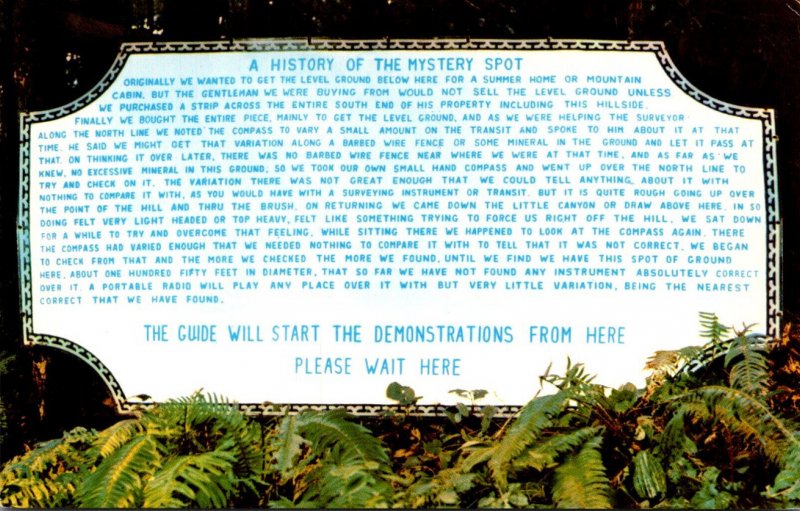 A HISTORY OF THE MYSTERY SPOT
ORIGINALLY WE WANTED TO GET THE LEVEL GROUND BELOW HERE FOR A SUMMER HOME OR MOUNTAIN
CABIN, BUT THE GENTLEMAN WE WERE BUYING FROM WOULD NOT SELL THE LEVEL GROUND UNLESS
WE PURCHASED A STRIP ACROSS THE ENTIRE SOUTH END OF HIS PROPERTY INCLUDING THIS HILLSIDE.
FINALLY WE BOUGHT THE ENTIRE PIECE, MAINLY TO GET THE LEVEL GROUND, AND AS WE WERE HELPING THE SURVEYOR
ALONG THE NORTH LINE WE NOTED THE COMPASS TO VARY A SMALL AMOUNT ON THE TRANSIT AND SPOKE TO HIM ABOUT IT AT THAT
TIME. HE SAID WE MIGHT GET THAT VARIATION ALONG A BARBED WIRE FENCE OR SOME MINERAL IN THE GROUND AND LET IT PASS AT
THAT. ON THINKING IT OVER LATER, THERE WAS NO BARBED WIRE FENCE NEAR WHERE WE WERE AT THAT TIME, AND AS FAR AS WE
KNEW, NO EXCESSIVE MINERAL IN THIS GROUND; SO WE TOOK OUR OWN SMALL HAND COMPASS AND WENT UP OVER THE NORTH LINE TO
TRY AND CHECK ON IT. THE VARIATION THERE WAS NOT GREAT ENOUGH THAT WE COULD TELL ANYTHING, ABOUT IT WITH
NOTHING TO COMPARE IT WITH, AS YOU WOULD HAVE WITH A SURVEYING INSTRUMENT OR TRANSIT. BUT IT IS QUITE ROUGH GOING UP OVER
THE POINT OF THE HILL AND THRU THE BRUSH. ON RETURNING WE CAME DOWN THE LITTLE CANYON OR DRAW ABOVE HERE. IN SO
DOING FELT VERY LIGHT HEADED OR TOP HEAVY, FELT LIKE SOMETHING TRYING TO FORCE US RIGHT OFF THE HILL. WE SAT DOWN
FOR A WHILE TO TRY AND OVERCOME THAT FEELING. WHILE SITTING THERE WE HAPPENED TO LOOK AT THE COMPASS AGAIN. THERE
THE COMPASS HAD VARIED ENOUGH THAT WE NEEDED NOTHING TO COMPARE IT WITH TO TELL THAT IT WAS NOT CORRECT. WE BEGAN
TO CHECK FROM THAT AND THE MORE WE CHECKED THE MORE WE FOUND, UNTIL WE FIND WE HAVE THIS SPOT OF GROUND
HERE, ABOUT ONE HUNDRED FIFTY FEET IN DIAMETER, THAT SO FAR WE HAVE NOT FOUND ANY INSTRUMENT ABSOLUTELY CORRECT
OVER IT. A PORTABLE RADIO WILL PLAY ANY PLACE OVER IT WITH BUT VERY LITTLE VARIATION, BEING THE NEAREST
CORRECT THAT WE HAVE FOUND.
THE GUIDE WILL START THE DEMONSTRATIONS FROM HERE
PLEASE WAIT HERE